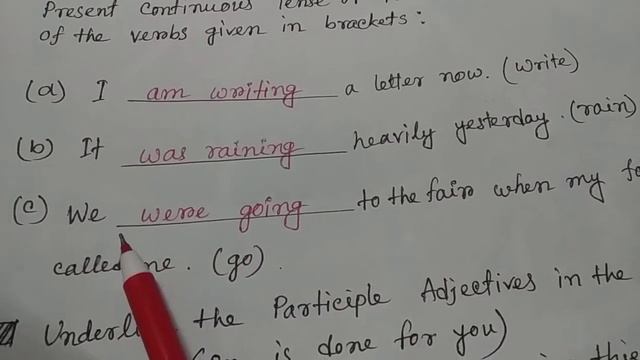 Present Continuous Tense
of the verbs given in brackets:
(a) I am writing a letter now. (write)
(b) It was raining heavily yesterday. (rain)
(c) We were going to the fair when my
called me. (go).
Underline the Participle Adjectives in the
is done for you)